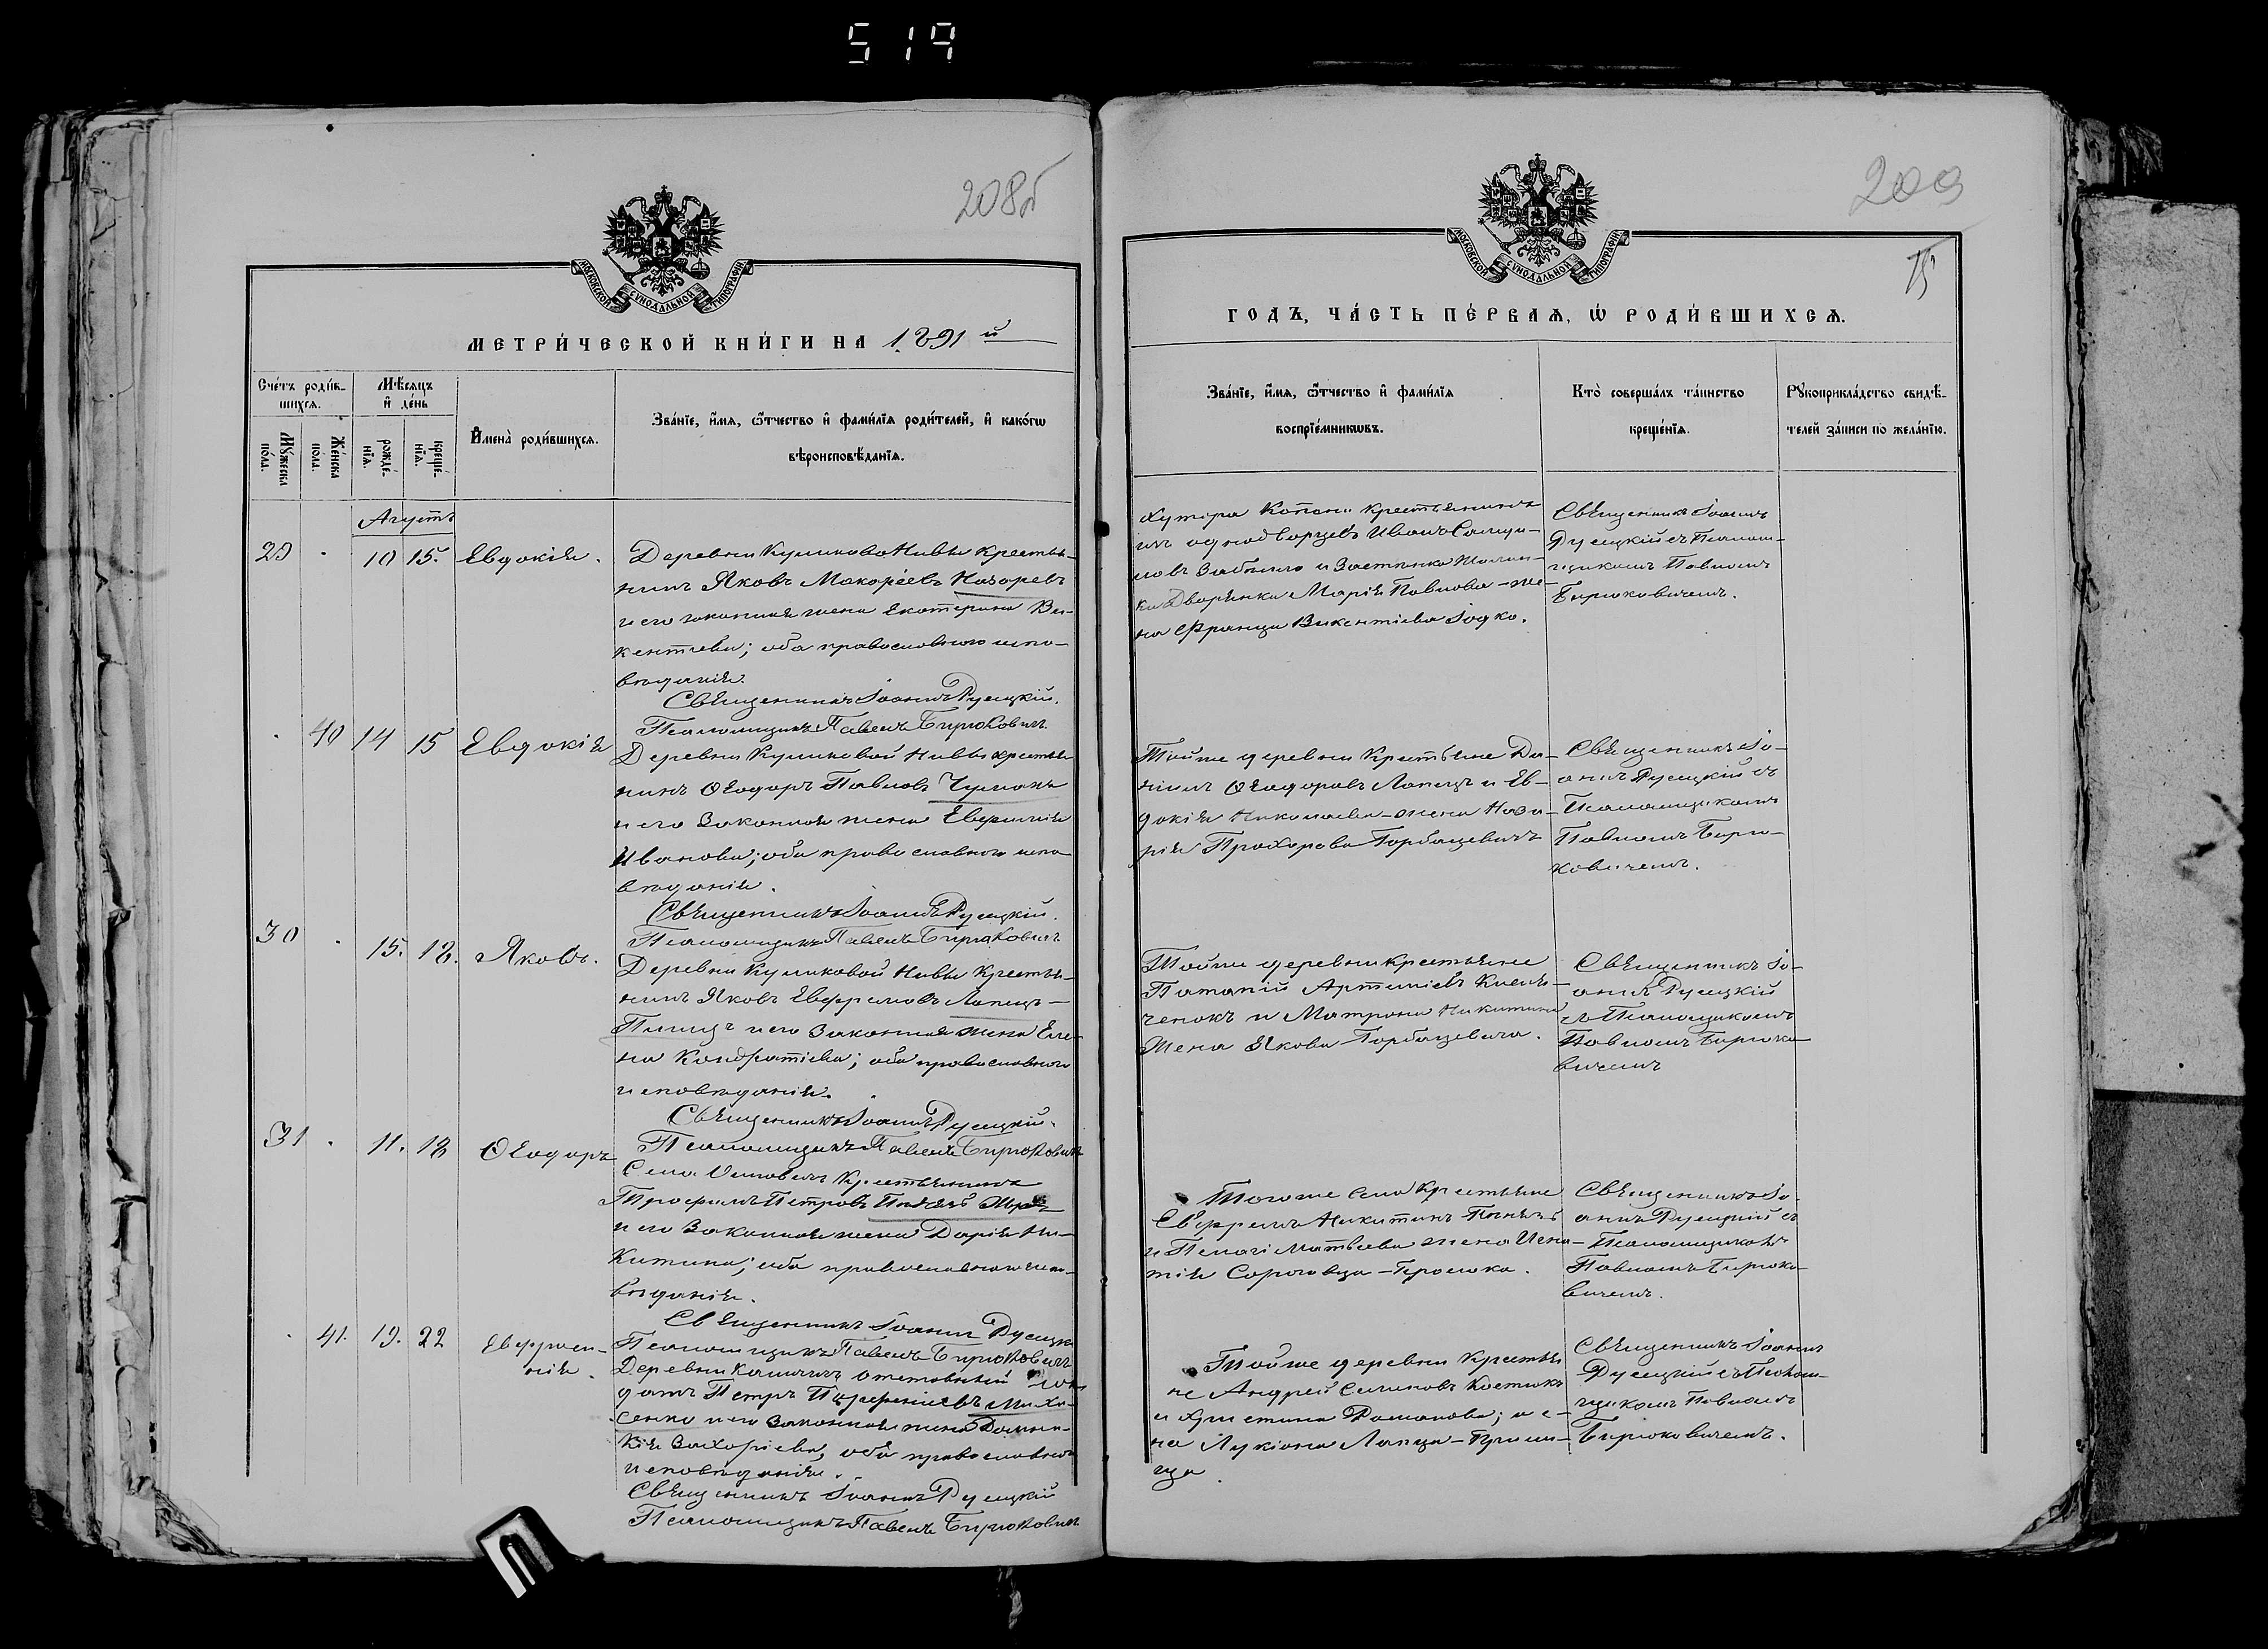 519
208б
209
75
МОСКОВСКОЙ СѴНОДАЛЬНОЙ ТИПОГРАФІИ
МЕТРИ́ЧЕСКОЙ КНИ́ГИ НА 1891 й
Сче́тъ роди́в-
шихсѧ.
Мꙋ́жеска по́ла.
Же́нска по́ла.
Мѣ́сѧцъ и҆ де́нь
рожде́-нїѧ.
креще́-нїѧ.
И҆мена̀ роди́вшихсѧ.
Зва́нїе, и҆́мѧ, ѻ҆́тчество и҆ фами́лїѧ роди́телей, и҆ како́гѡ
вѣроисповѣ́данїѧ.
Августъ
29 . 10 15. Евдокія.
Деревни Куликово Нивы крестья-
нинъ Яковъ Макарѣевъ Назаревъ
и его законная жена Екатерина Ви-
кентіева; оба православнаго испо-
вѣданія.
Священникъ Іоаннъ Русецкій.
Псаломщикъ Павелъ Бирюковичъ
. 40 14 15 Евдокія
Деревни Куликовой Нивы крестья
нинъ Ѳеодоръ Павловъ Чуманъ
и его законная жена Евфимія
Иванова; оба православнаго испо
вѣданія.
Священникъ Іоаннъ Русецкій.
Псаломщикъ Павелъ Бирюковичъ
30 . 15. 18. Яковъ.
Деревни Куликовой Нивы крестья-
нинъ Яковъ Евфимовъ Лапецъ-
и его законная жена Еле-
на Кондратіева; оба православнаго
исповѣданія.
Священникъ Іоаннъ Русецкій.
Псаломщикъ Павелъ Бирюковичъ
31 . 11. 18 Ѳеодоръ
Села крестьянинъ
Трофимъ Петровъ
и его законная жена Дарія Ни-
китина; оба православнаго испо-
вѣданія.
Священникъ Іоаннъ Русецкій
Псаломщикъ Павелъ Бирюковичъ
. 41. 19. 22 Евфроси-
нія.
Деревни отставный сол
датъ Петръ Парфеніевъ Миха-
сенко и его законная жена Домни-
кія Захаріева, оба православнаго
исповѣданія.
Священникъ Іоаннъ Русецкій
Псаломщикъ Павелъ Бирюковичъ
МОСКОВСКОЙ СѴНОДАЛЬНОЙ ТИПОГРАФІИ
ГОДЪ, ЧА́СТЬ ПЕ́РВАѦ, Ѡ҆ РОДИ́ВШИХСѦ.
Зва́нїе, и҆́мѧ, ѻ҆́тчество и҆ фами́лїѧ
воспрїе́мникѡвъ.
Кто̀ соверша́лъ та́инство
креще́нїѧ.
Рꙋкоприкла́дство свидѣ́-
телей за́писи по жела́нїю.
Хутора Копани крестьянинъ
изъ однодворцевъ Иванъ
новъ Забѣлло и застѣнка
Дворянка Марія Павлова - же-
на Франца Викентіева Іодко.
Священникъ Іоаннъ
Русецкій съ Псалом-
щикомъ Павломъ
Бирюковичемъ.
Тойже деревни крестьяне Да-
ніилъ Ѳеодоровъ Лапецъ и Ев-
докія Николаева - жена Наза-
рія Прохорова Горбацевичъ
Священникъ Іо-
аннъ Русецкій съ
Псаломщикомъ
Павломъ Бирю-
ковичемъ.
Тойже деревни крестьяне
Потапій Артиміевъ
ченокъ и Матрона Никитина
жена Якова Горбацевича.
Священникъ Іо-
аннъ Русецкій
съ Псаломщикомъ
Павломъ Бирюко
вичемъ
Того же села крестьяне
Евфремъ Никитинъ
и Пелагі Матвѣева жена Игна-
тія
Священникъ Іо-
аннъ Русецкій съ
Псаломщикомъ
Павломъ Бирюко-
вичемъ.
Тойже деревни крестья
не Андрей Семеновъ Костюкъ
и Христина Романова; же-
на Лукіана Лапца -
ца.
Священникъ Іоаннъ
Русецкій съ Псалом-
щикомъ Павломъ
Бирюковичемъ.